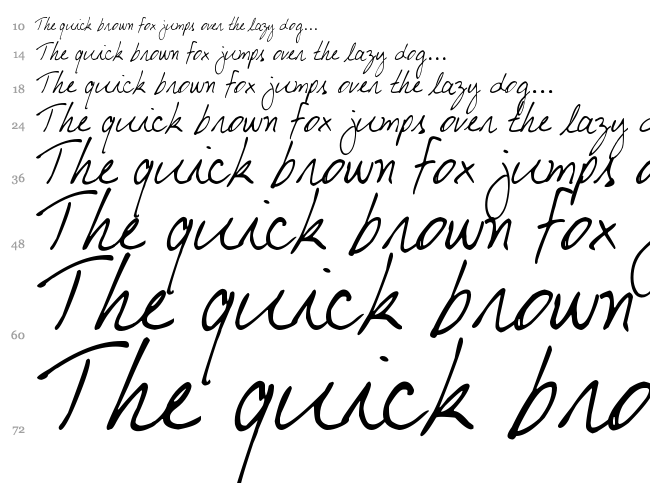 10 The quick brown fox jumps over the lazy dog...
14 The quick brown fox jumps over the lazy dog...
18 The quick brown fox jumps over the lazy dog...
24 The quick brown fox jumps over the lazy d
36 The quick brown fox jumps o
48 The quick brown fox j
60 The quick brown
72 The quick bro